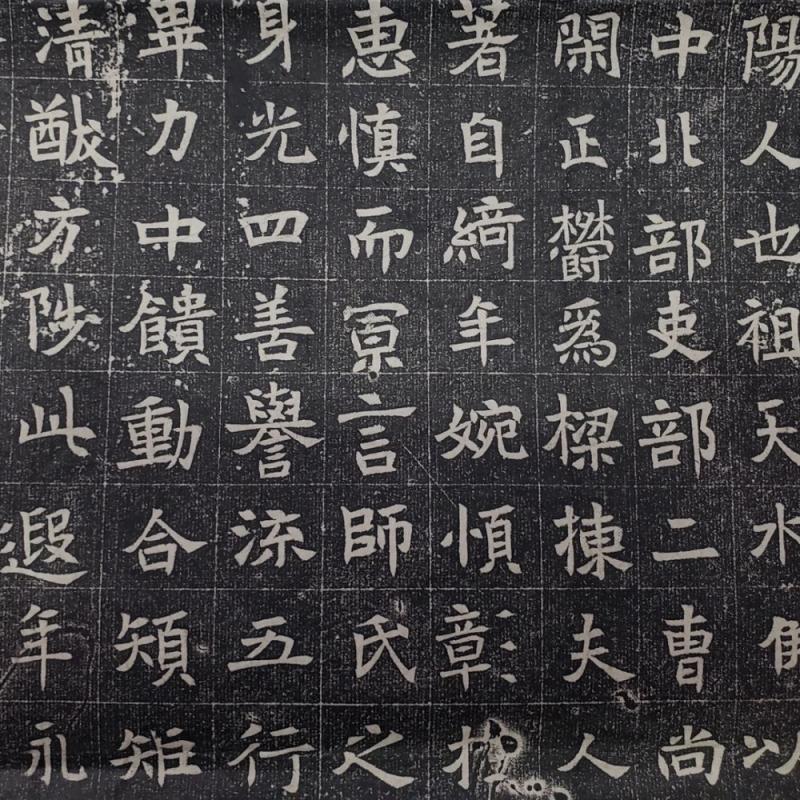 陽人也祖天水以
中北部吏部二曹尚
閑正欝爲樑棟夫人
著自綺年婉順彰
恵慎而寡言師氏之
身光四善譽流五行
畢力中饋動合䂓矩
清猷方陟此遐年永